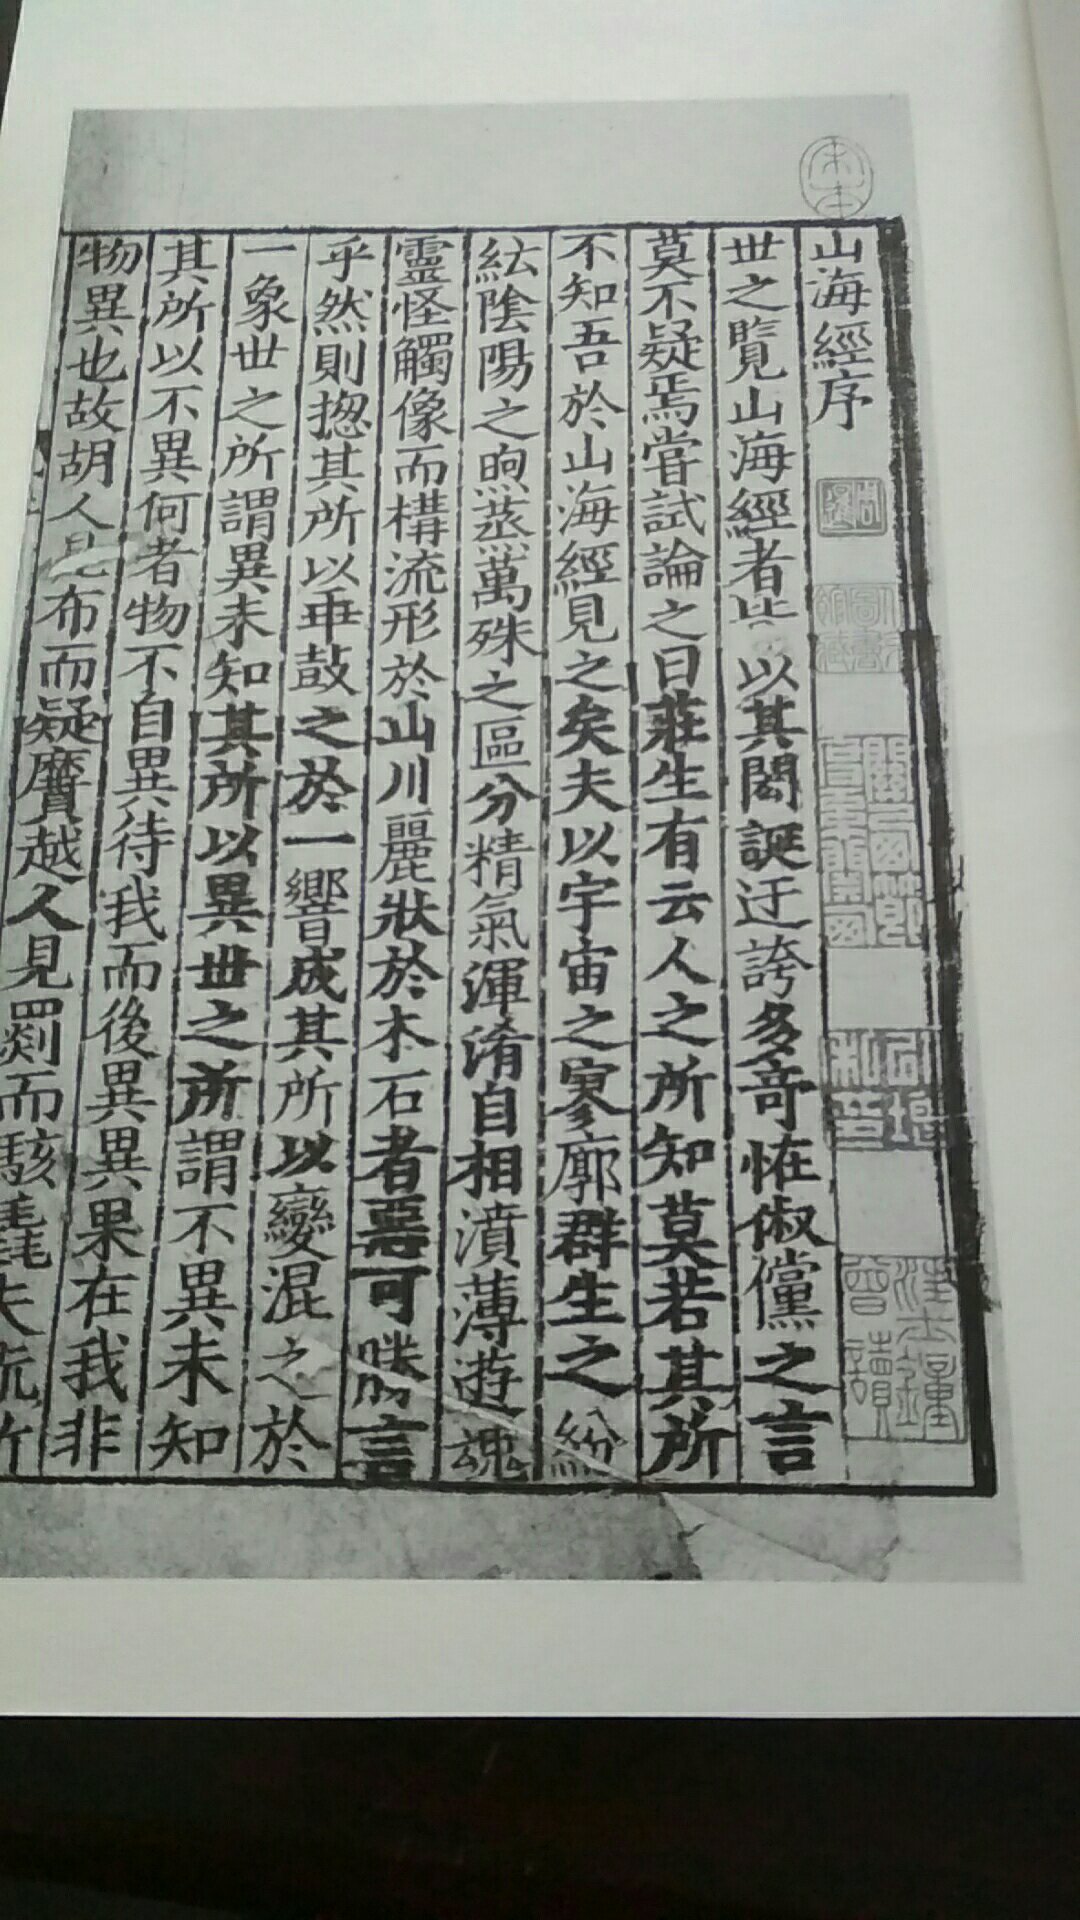 宋本
山海經序
世之覽山海經者皆以其閎誕迂誇多奇恠俶儻之言
莫不疑焉甞試論之曰莊生有云人之所知莫若其所
不知吾於山海經見之矣夫以宇宙之寥廓群生之紛
紜陰陽之煦蒸萬殊之區分精氣渾淆自相濆薄遊魂
靈怪觸像而構流形於山川麗狀於木石者惡可勝言
乎然則揔其所以乖鼓之於一響成其所以變混之於
一象世之所謂異未知其所以異世之所謂不異未知
其所以不異何者物不自異待我而後異異果在我非
物異也故胡人見布而疑黂越人見罽而駭毳夫翫所